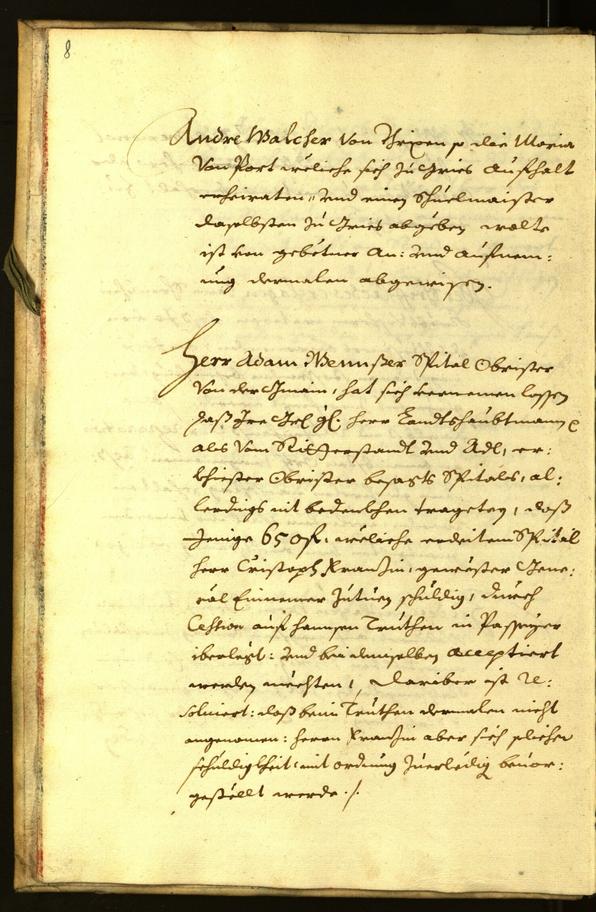 8
Andre Walcher von Brixen p die Maria
von Port weliche sich zu Gries aufhalt
erheiraten, und einen Schuelmaister
daselbsten zu Gries abgeben welte
ist von gebetner An: und Aufnem:
ung dermalen abgewisen.
Herr Adam Wennsser Spital Obrister
von der Gmain, hat sich vernemen lassen
dass Ire herr Landtshaubtman
als vom Ritterstandt und Adl, er:
khiester Obrister besagts Spitals, al:
lerdings nit bedenkhen trageten, dass
Jenige 650 f. weliche erdeitem Spital
herr Cristoph gewester Gene:
ral Einnemer zutuen schuldig, durch
Cession auf hannsen Truthen in Passeyer
iberlegt: und bei demselben acceptiert
werden mechten, Dariber ist Re:
solviert: dass beim Truthen dermalen nicht
angenomen: herrn aber sich solicher
schuldigkheit mit ordnung zuerledig bevor:
gestellt werde ./.